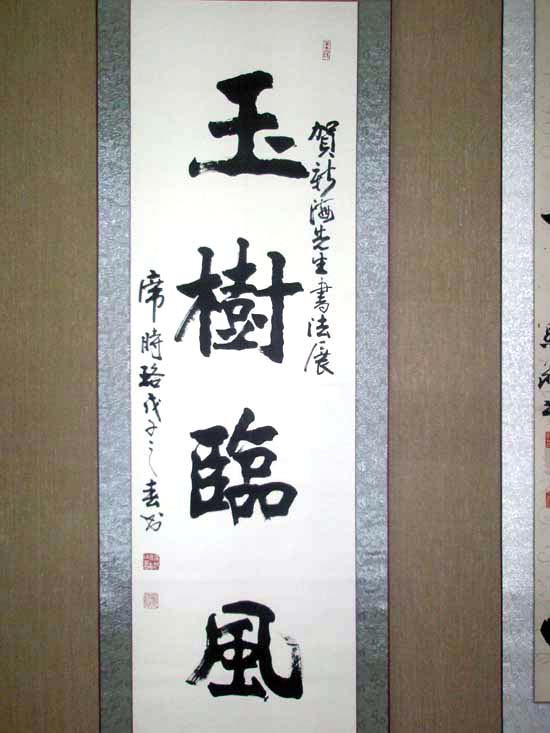 賀新海先生書法展
玉樹臨風
席時珞戊子之春